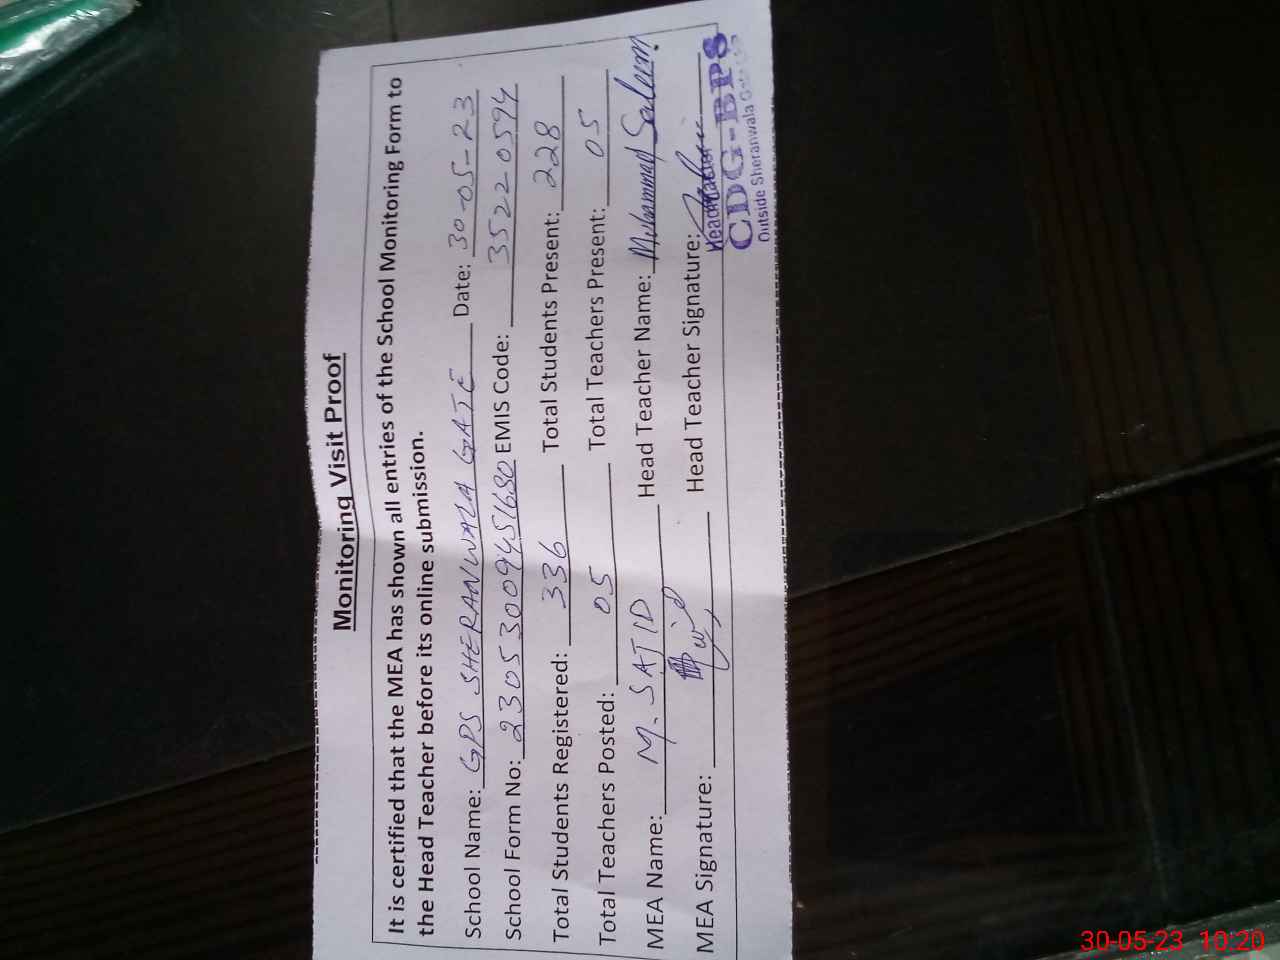 Monitoring Visit Proof
It is certified that the MEA has shown all entries of the School Monitoring Form to
the Head Teacher before its online submission.
School Name: GPS SHERANWALA GATE Date: 30-05-23
School Form No: 230530094451680 EMIS Code: 35220594
Total Students Registered: 336 Total Students Present: 228
Total Teachers Posted: 05 Total Teachers Present: 05
MEA Name: M. SAJID Head Teacher Name: Muhammad Saleem
MEA Signature: Head Teacher Signature:
Headmaster
CDG-BPS
Outside Sheranwala
30-05-23 10:20